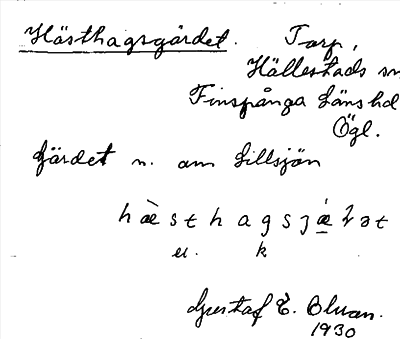 Hästhagsgärdet. Torp,
Hällestads sn
Finspånga läns hd
Ögl.
Gärdet n. om Lillsjön
hæ̀sthagsjǽ̠ɭət
u. k
Gustaf E. Bluan.
1930